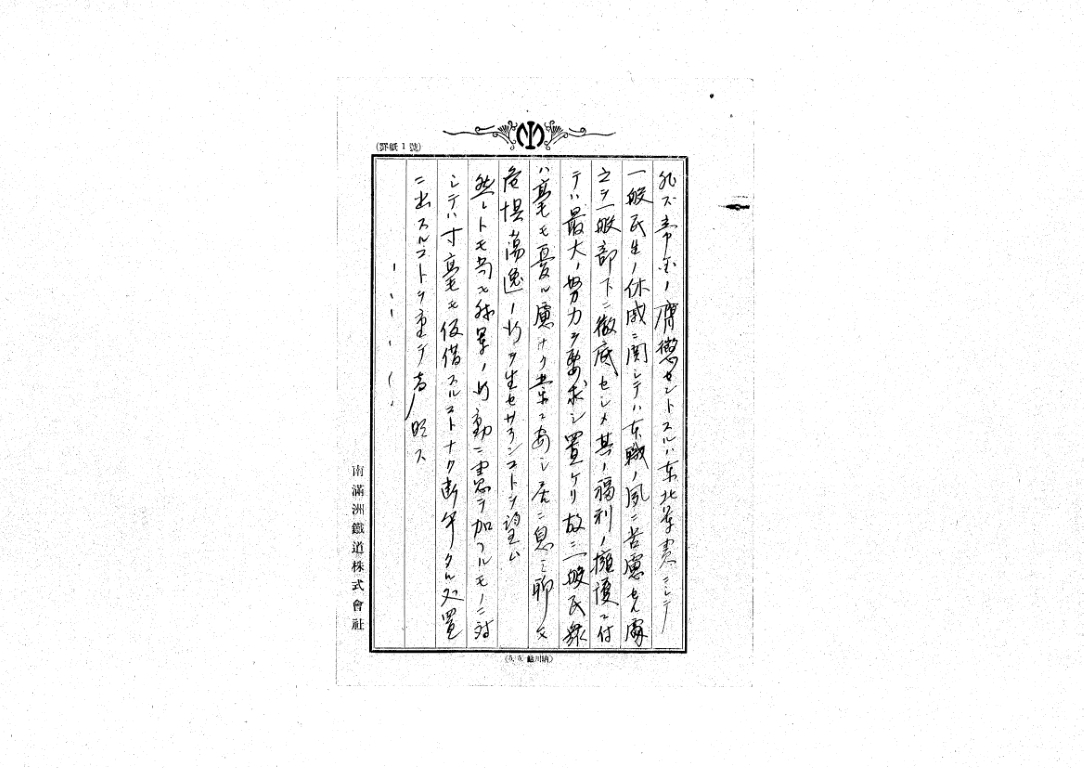 (罫紙1號)
ノ膺懲セントスルハ東北軍憲ニシテ
一般民生ノ休戚ニ関シテハ本職ノ夙ニ苦慮セル處
一般部下ニ徹底セシメ其ノ福利ノ擁護ニ付
テハ最大ノ努力ヲ要求シ置ケリ故ニ一般民衆
ハ毫モ憂慮ナク業ニ安シ居ニ息ミ聊モ
危惧蕩逸ノ行ヲ生セサランコトヲ望ム
然レトモ苟モ我軍ノ行動ニ害ヲ加フルモノニ対
シテハ寸毫モ仮借スルコトナク断乎タル処置
ニ出スルコトヲ重テ声明ス
南滿洲鐵道株式會社